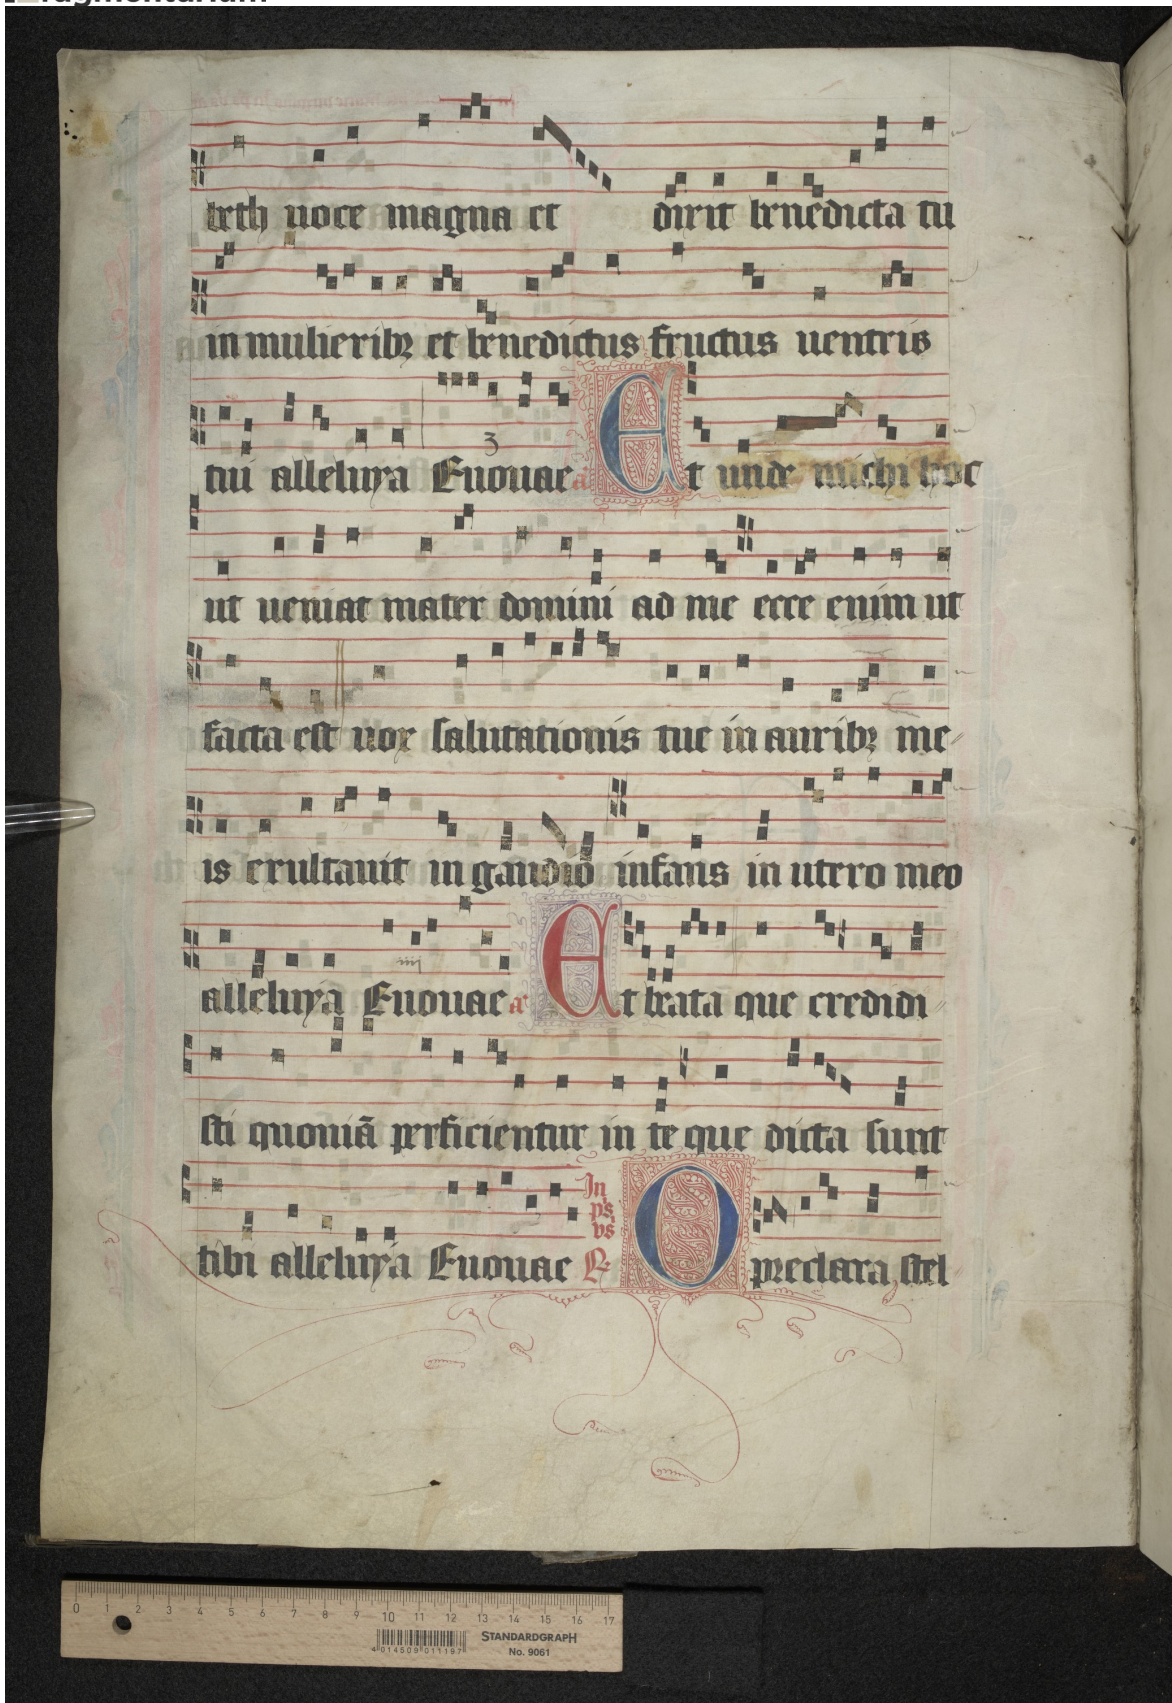 beth uoce magna et dixit benedicta tu
in mulieribꝫ et benedictus fructus uentris
tui alleluya Euouae a Et unde michi hoc
ut ueniat mater domini ad me ecce enim ut
facta est uox salutationis tue in auribꝫ me
is exultauit in gaudio infans in utero meo
alleluya Euouae a Et beata que credidi
sti quoniã perficientur in te que dicta sunt
In
ps
vs
tibi alleluya Euouae R O preclara stel
0 1 2 3 4 5 6 7 8 9 10 11 12 13 14 15 16 17
STANDARDGRAPH
4 014509 011197
No. 9061